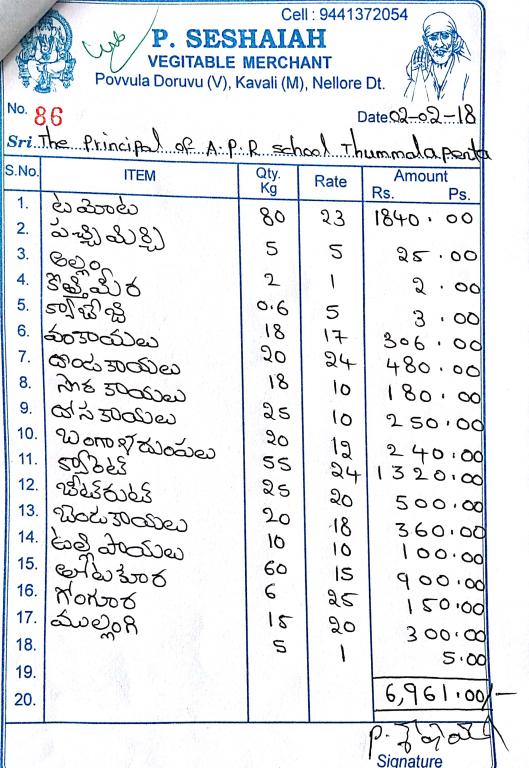 Cell : 9441372054
P. SESHAIAH
VEGITABLE MERCHANT
Povvula Doruvu (V), Kavali (M), Nellore Dt.
No. 86 Date 02-02-18
Sri. The principal of A.P.R school Thummalapenta
S.No. ITEM Qty. Kg Rate Amount Rs. Ps.
1. టమోట 80 23 1840.00
2. పచ్చిమిర్చి 5 5 25.00
3. అల్లం 2 1 2.00
4. కొత్తిమీర 0.6 5 3.00
5. క్యాబేజి 18 17 306.00
6. వంకాయలు 20 24 480.00
7. దొండకాయలు 18 10 180.00
8. సొరకాయలు 25 10 250.00
9. దోసకాయలు 20 12 240.00
10. బంగాళదుంపలు 55 24 1320.00
11. క్యారెట్ 25 20 500.00
12. బీట్‌రూట్ 20 18 360.00
13. బెండకాయలు 10 10 100.00
14. ఉల్లిపాయలు 60 15 900.00
15. 6 25 150.00
16. గోంగూర 15 20 300.00
17. ముల్లంగి 5 1 5.00
18.
19.
20. 6,961.00/-
Signature